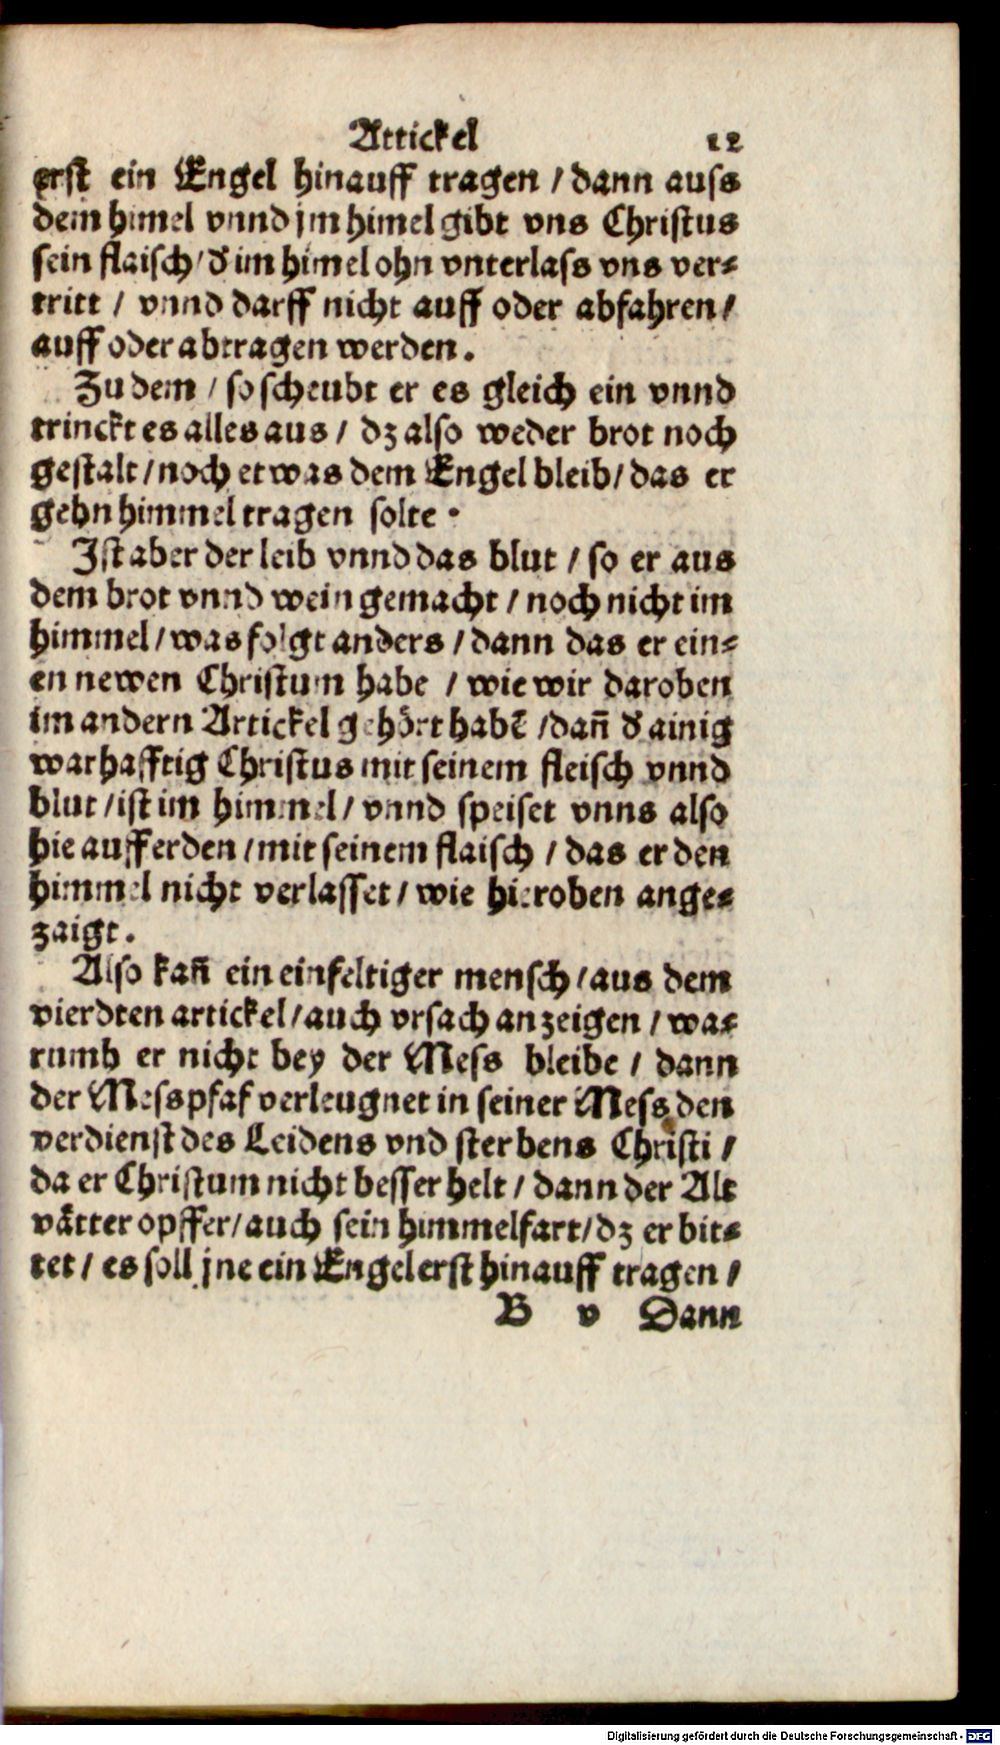 Attickel 12
erst ein Engel hinauff tragen / dann auss
dem himel vnnd jm himel gibt vns Christus
sein flaisch / d̕ im himel ohn vnterlass vns ver⸗
tritt / vnnd darff nicht auff oder abfahren /
auff oder abtragen werden.
Zu dem / so scheubt er es gleich ein vnnd
trinckt es alles aus / dz also weder brot noch
gestalt / noch etwas dem Engel bleib / das er
gehn himmel tragen solte.
Ist aber der leib vnnd das blut / so er aus
dem brot vnnd wein gemacht / noch nicht im
himmel / was folgt anders / dann das er ein⸗
en newen Christum habe / wie wir daroben
im andern Artickel gehört habẽ / dañ d̕ ainig
warhafftig Christus mit seinem fleisch vnnd
blut / ist im himmel / vnnd speiset vnns also
hie auff erden / mit seinem flaisch / das er den
himmel nicht verlasset / wie hieroben ange⸗
zaigt.
Also kañ ein einfeltiger mensch / aus dem
vierdten artickel / auch vrsach anzeigen / wa⸗
rumb er nicht bey der Mess bleibe / dann
der Messpfaf verleugnet in seiner Mess den
verdienst des Leidens vnd sterbens Christi /
da er Christum nicht besser helt / dann der Alt
vätter opffer / auch sein himmelfart / dz er bit⸗
tet / es soll jne ein Engel erst hinauff tragen /
B v Dann
Digitalisierung gefördert durch die Deutsche Forschungsgemeinschaft - DFG